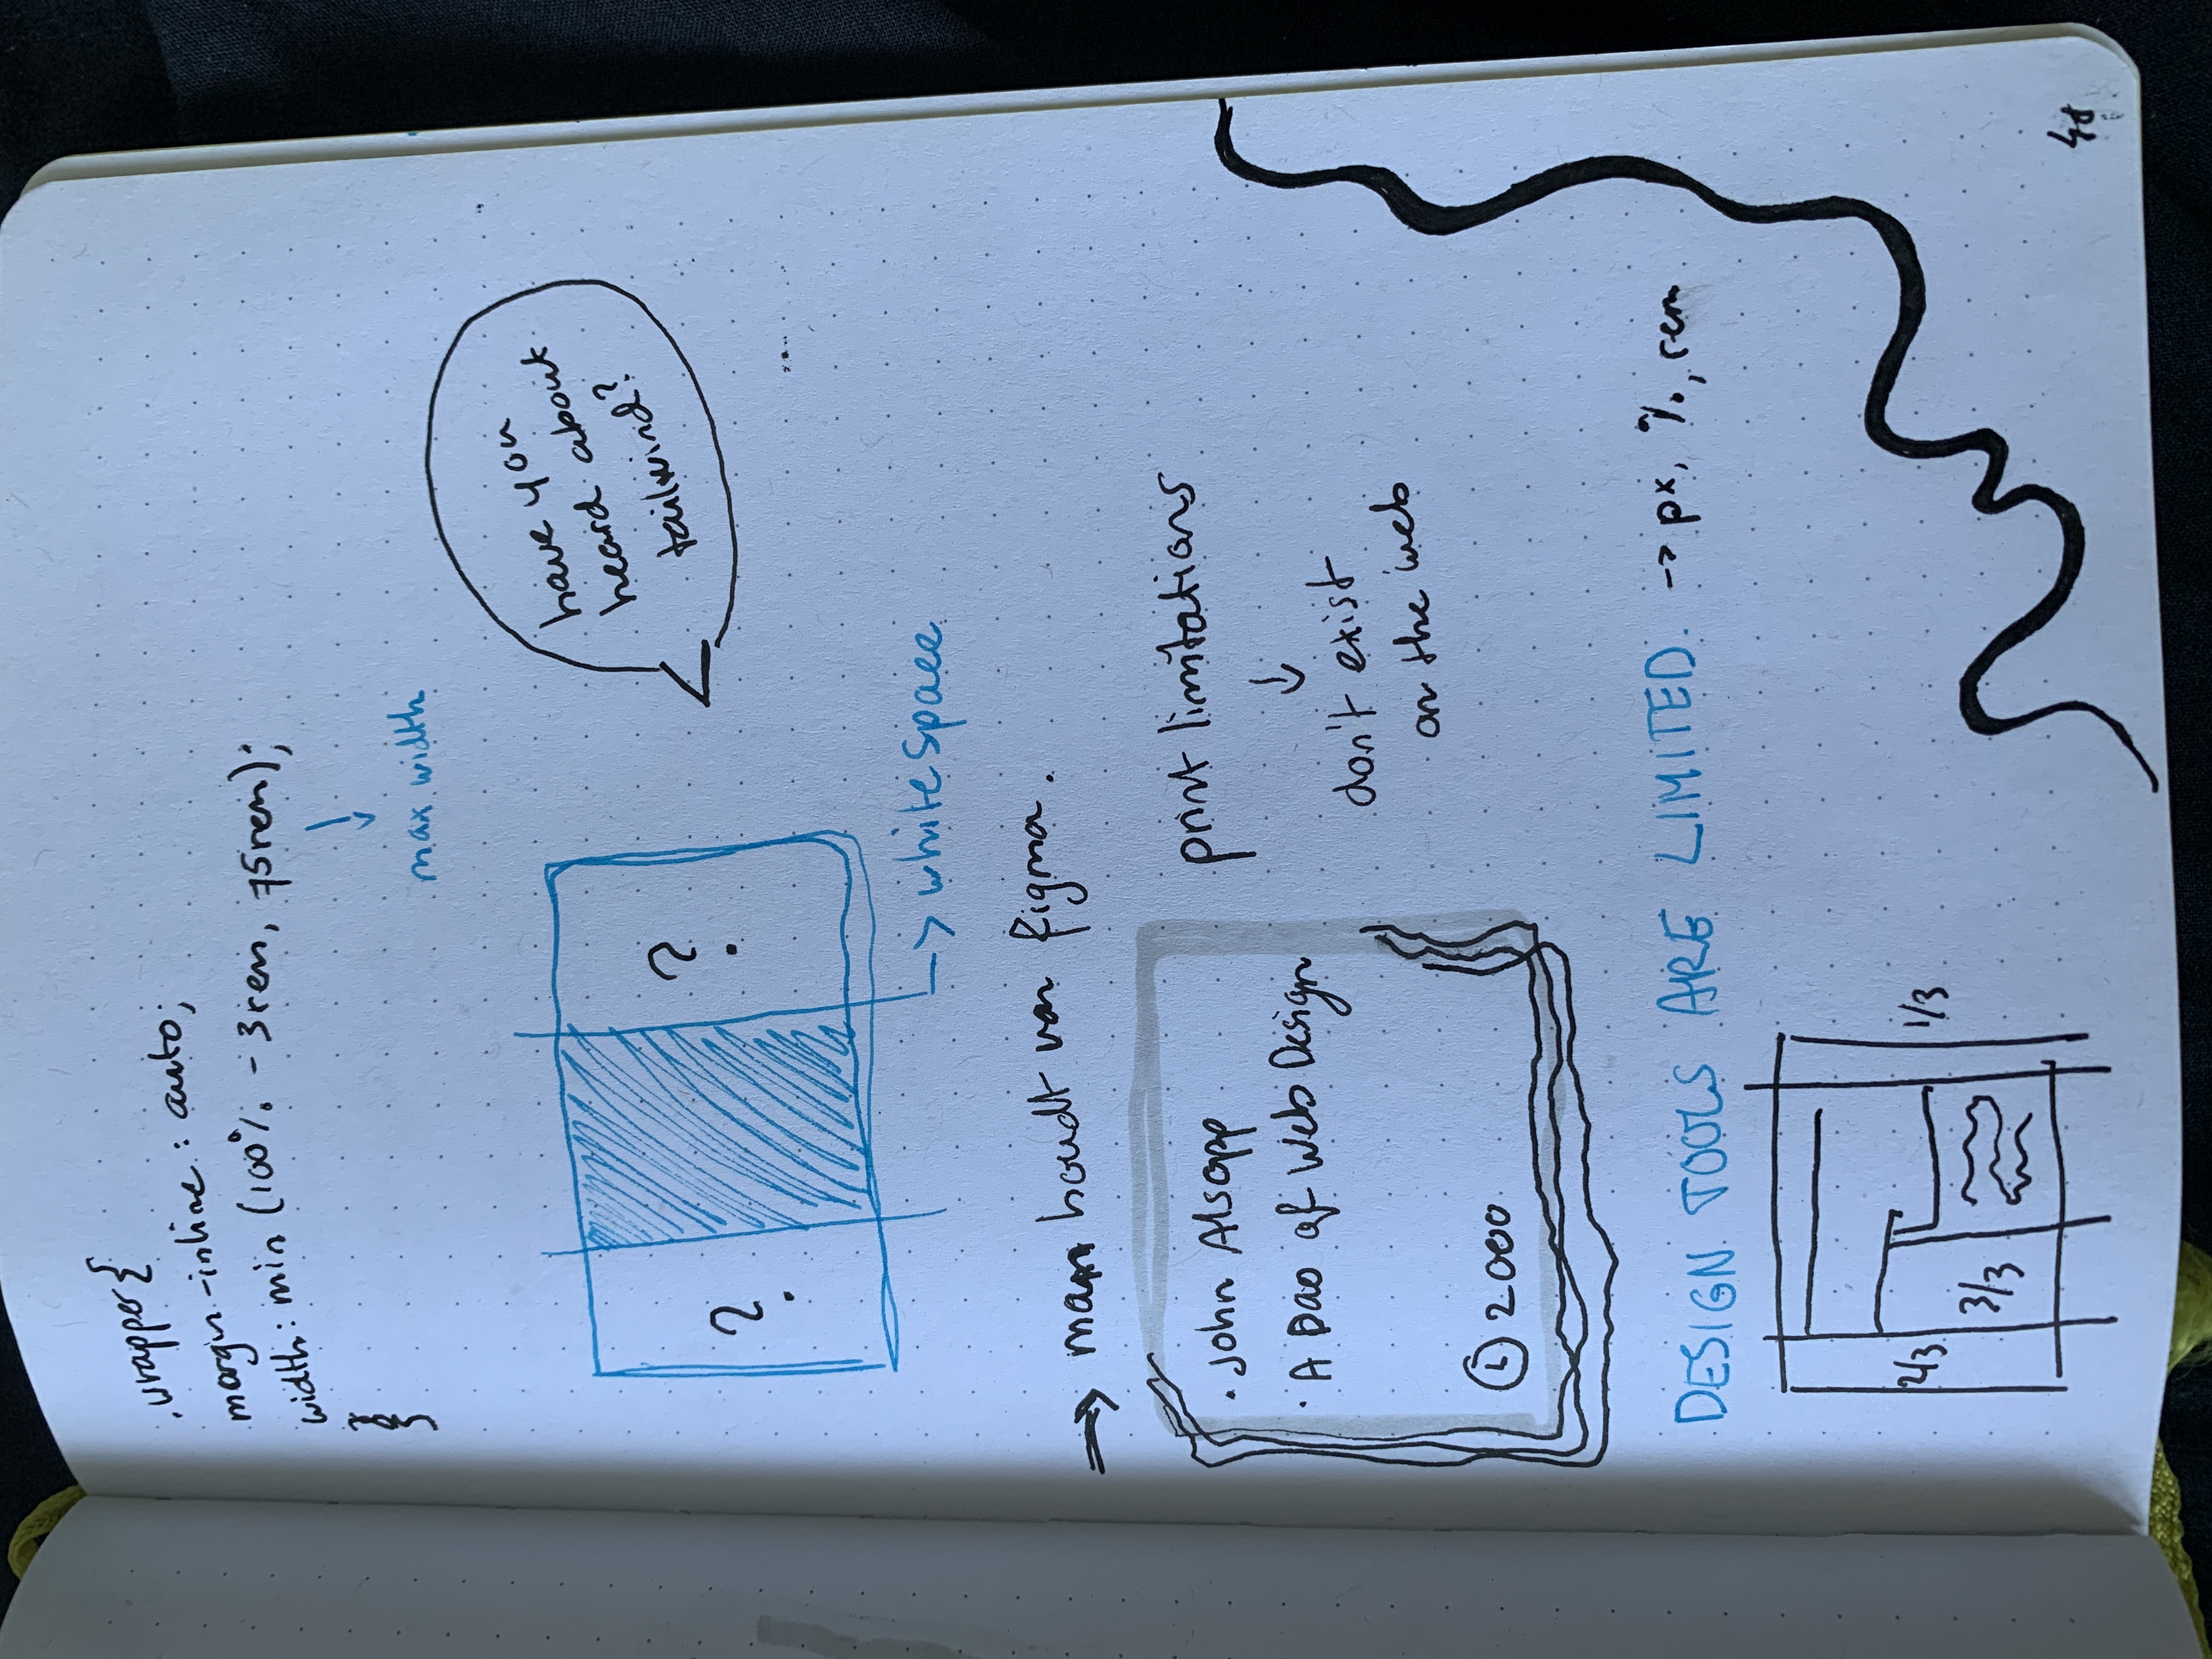 .wrapper{
margin-inline: auto;
width: min (100% - 3rem, 75rem);
}
↓
max width
have you
heard about
tailwind?
?
?
-> white space
=> man houdt van figma.
• John Alsopp
• A Dao of Web Design
2000
print limitations
↓
don't exist
on the web
DESIGN TOOLS ARE LIMITED. -> px, %, rem
2/3
3/3
1/3